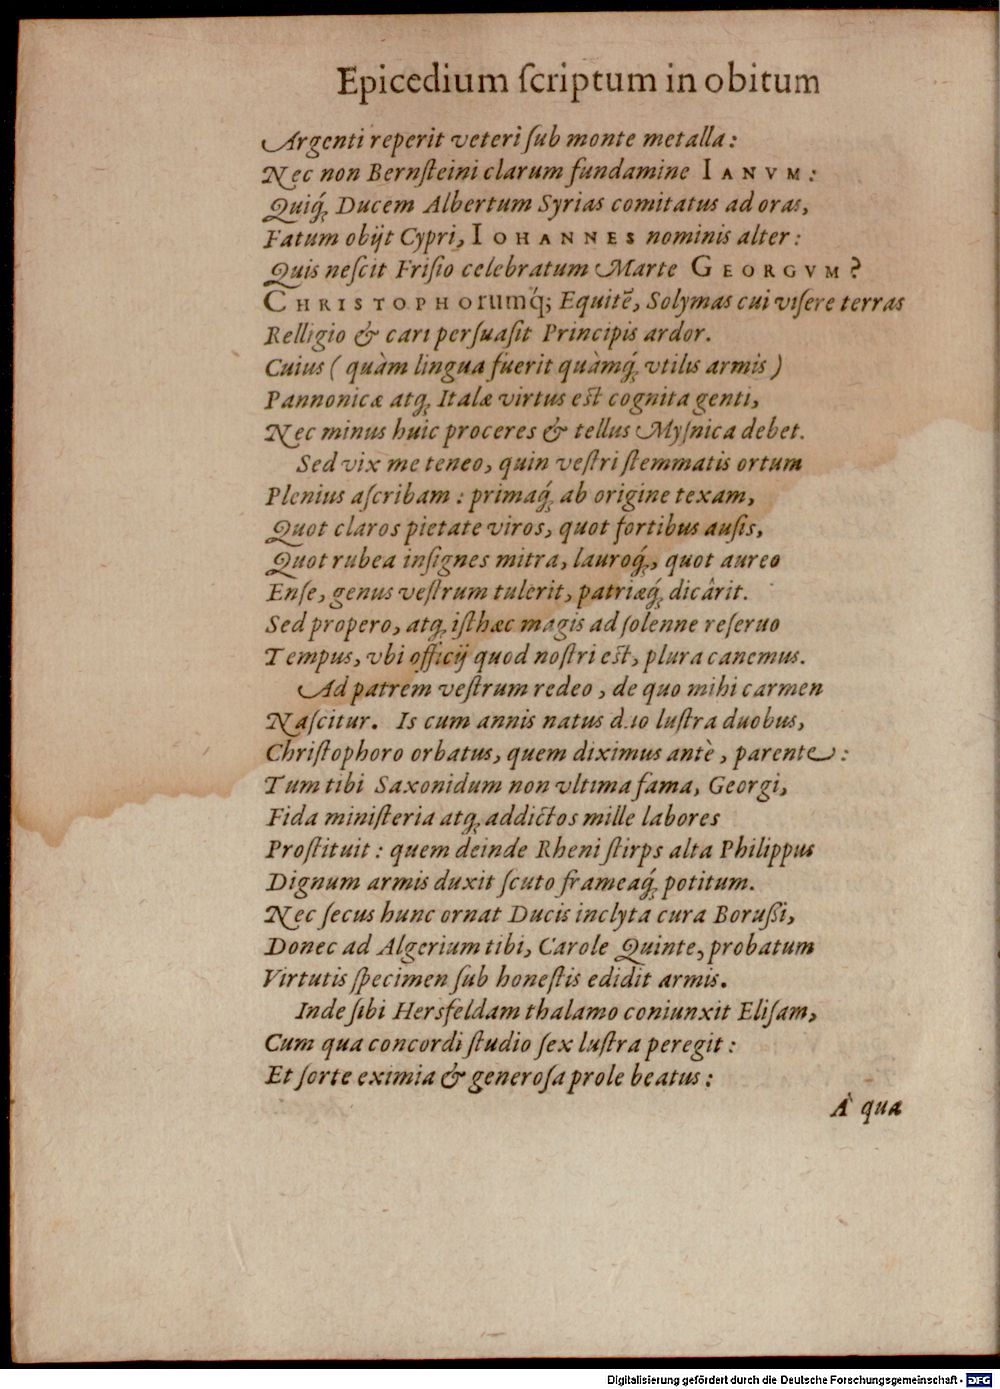 Epicedium ſcriptum in obitum
Argenti reperit veteri ſub monte metalla:
Nec non Bernſteini clarum fundamine IANVM:
Quiq́; Ducem Albertum Syrias comitatus ad oras,
Fatum obijt Cypri, IOHANNES nominis alter:
Quis neſcit Friſio celebratum Marte GEORGVM?
CHRISTOPHOrumq́; Equitē, Solymas cui viſere terras
Relligio & cari perſuaſit Principis ardor.
Cuius (quàm lingua fuerit quàmq́; vtilis armis)
Pannonicæ atq; Italæ virtus est cognita genti,
Nec minus huic proceres & tellus Myſnica debet.
Sed vix me teneo, quin veſtri ſtemmatis ortum
Plenius aſcribam: primaq́; ab origine texam,
Quot claros pietate viros, quot fortibus auſis,
Quot rubea inſignes mitra, lauroq́;, quot aureo
Enſe, genus veſtrum tulerit, patriæq́; dicârit.
Sed propero, atq; iſthæc magis ad ſolenne reſeruo
Tempus, vbi officij quod noſtri est, plura canemus.
Ad patrem veſtrum redeo, de quo mihi carmen
Naſcitur. Is cum annis natus duo luſtra duobus,
Chriſtophoro orbatus, quem diximus antè, parente:
Tum tibi Saxonidum non vltima fama, Georgi,
Fida miniſteria atq; addictos mille labores
Proſtituit: quem deinde Rheni ſtirps alta Philippus
Dignum armis duxit ſcuto frameaq́; potitum.
Nec ſecus hunc ornat Ducis inclyta cura Boruſſi,
Donec ad Algerium tibi, Carole Quinte, probatum
Virtutis ſpecimen ſub honeſtis edidit armis.
Inde ſibi Hersfeldam thalamo coniunxit Eliſam,
Cum qua concordi ſtudio ſex luſtra peregit:
Et ſorte eximia & generoſa prole beatus:
À qua
Digitalisierung gefördert durch die Deutsche Forschungsgemeinschaft - DFG